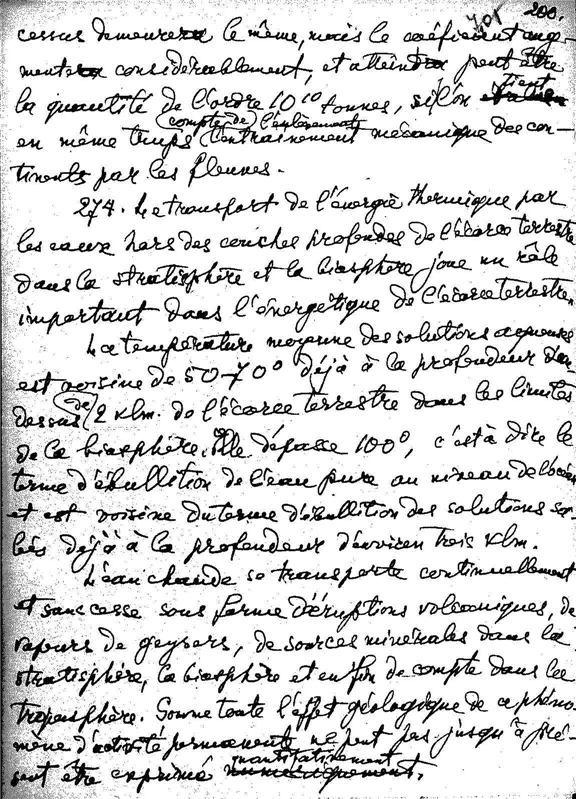 701 200.
cessus demeurera le même, mais le coéficient auge-
mentera considérablement, et atteindra peut être
la quantité de l'ordre 10¹⁰ tonnes, si l'on tient
compte de l'enlèvement
en même temps l'entrainement mécanique des con-
tinents par les fleuves.
274. Le transport de l'énergie thermique par
les eaux hors des couches profondes de l'écorce terrestre
dans la stratisphère et la biosphère joue un rôle
important dans l'énergétique de l'écorce terrestre.
La température moyenne des solutions aqueuses
est voisine de 50-70° déjà à la profondeur
dessus de 2 klm. de l'écorce terrestre dans les limites
de la biosphère. Elle dépasse 100°, c'est à dire le
terme d'ébullition de l'eau pure au niveau de l'océan
et est voisine du terme d'ébullition des solutions sa-
lées déjà à la profondeur d'environ trois klm.
L'eau chaude se transporte continuellement
et sans cesse sous forme d'éruptions volcaniques, de
vapeurs de geysers, de sources minérales dans la
stratisphère, la biosphère et en fin de compte dans la
troposphère. Somme toute l'effet géologique de ce phéno-
mène d'activité permanente ne peut pas jusqu'à pré-
quantitativement
sent être exprimé numériquement.